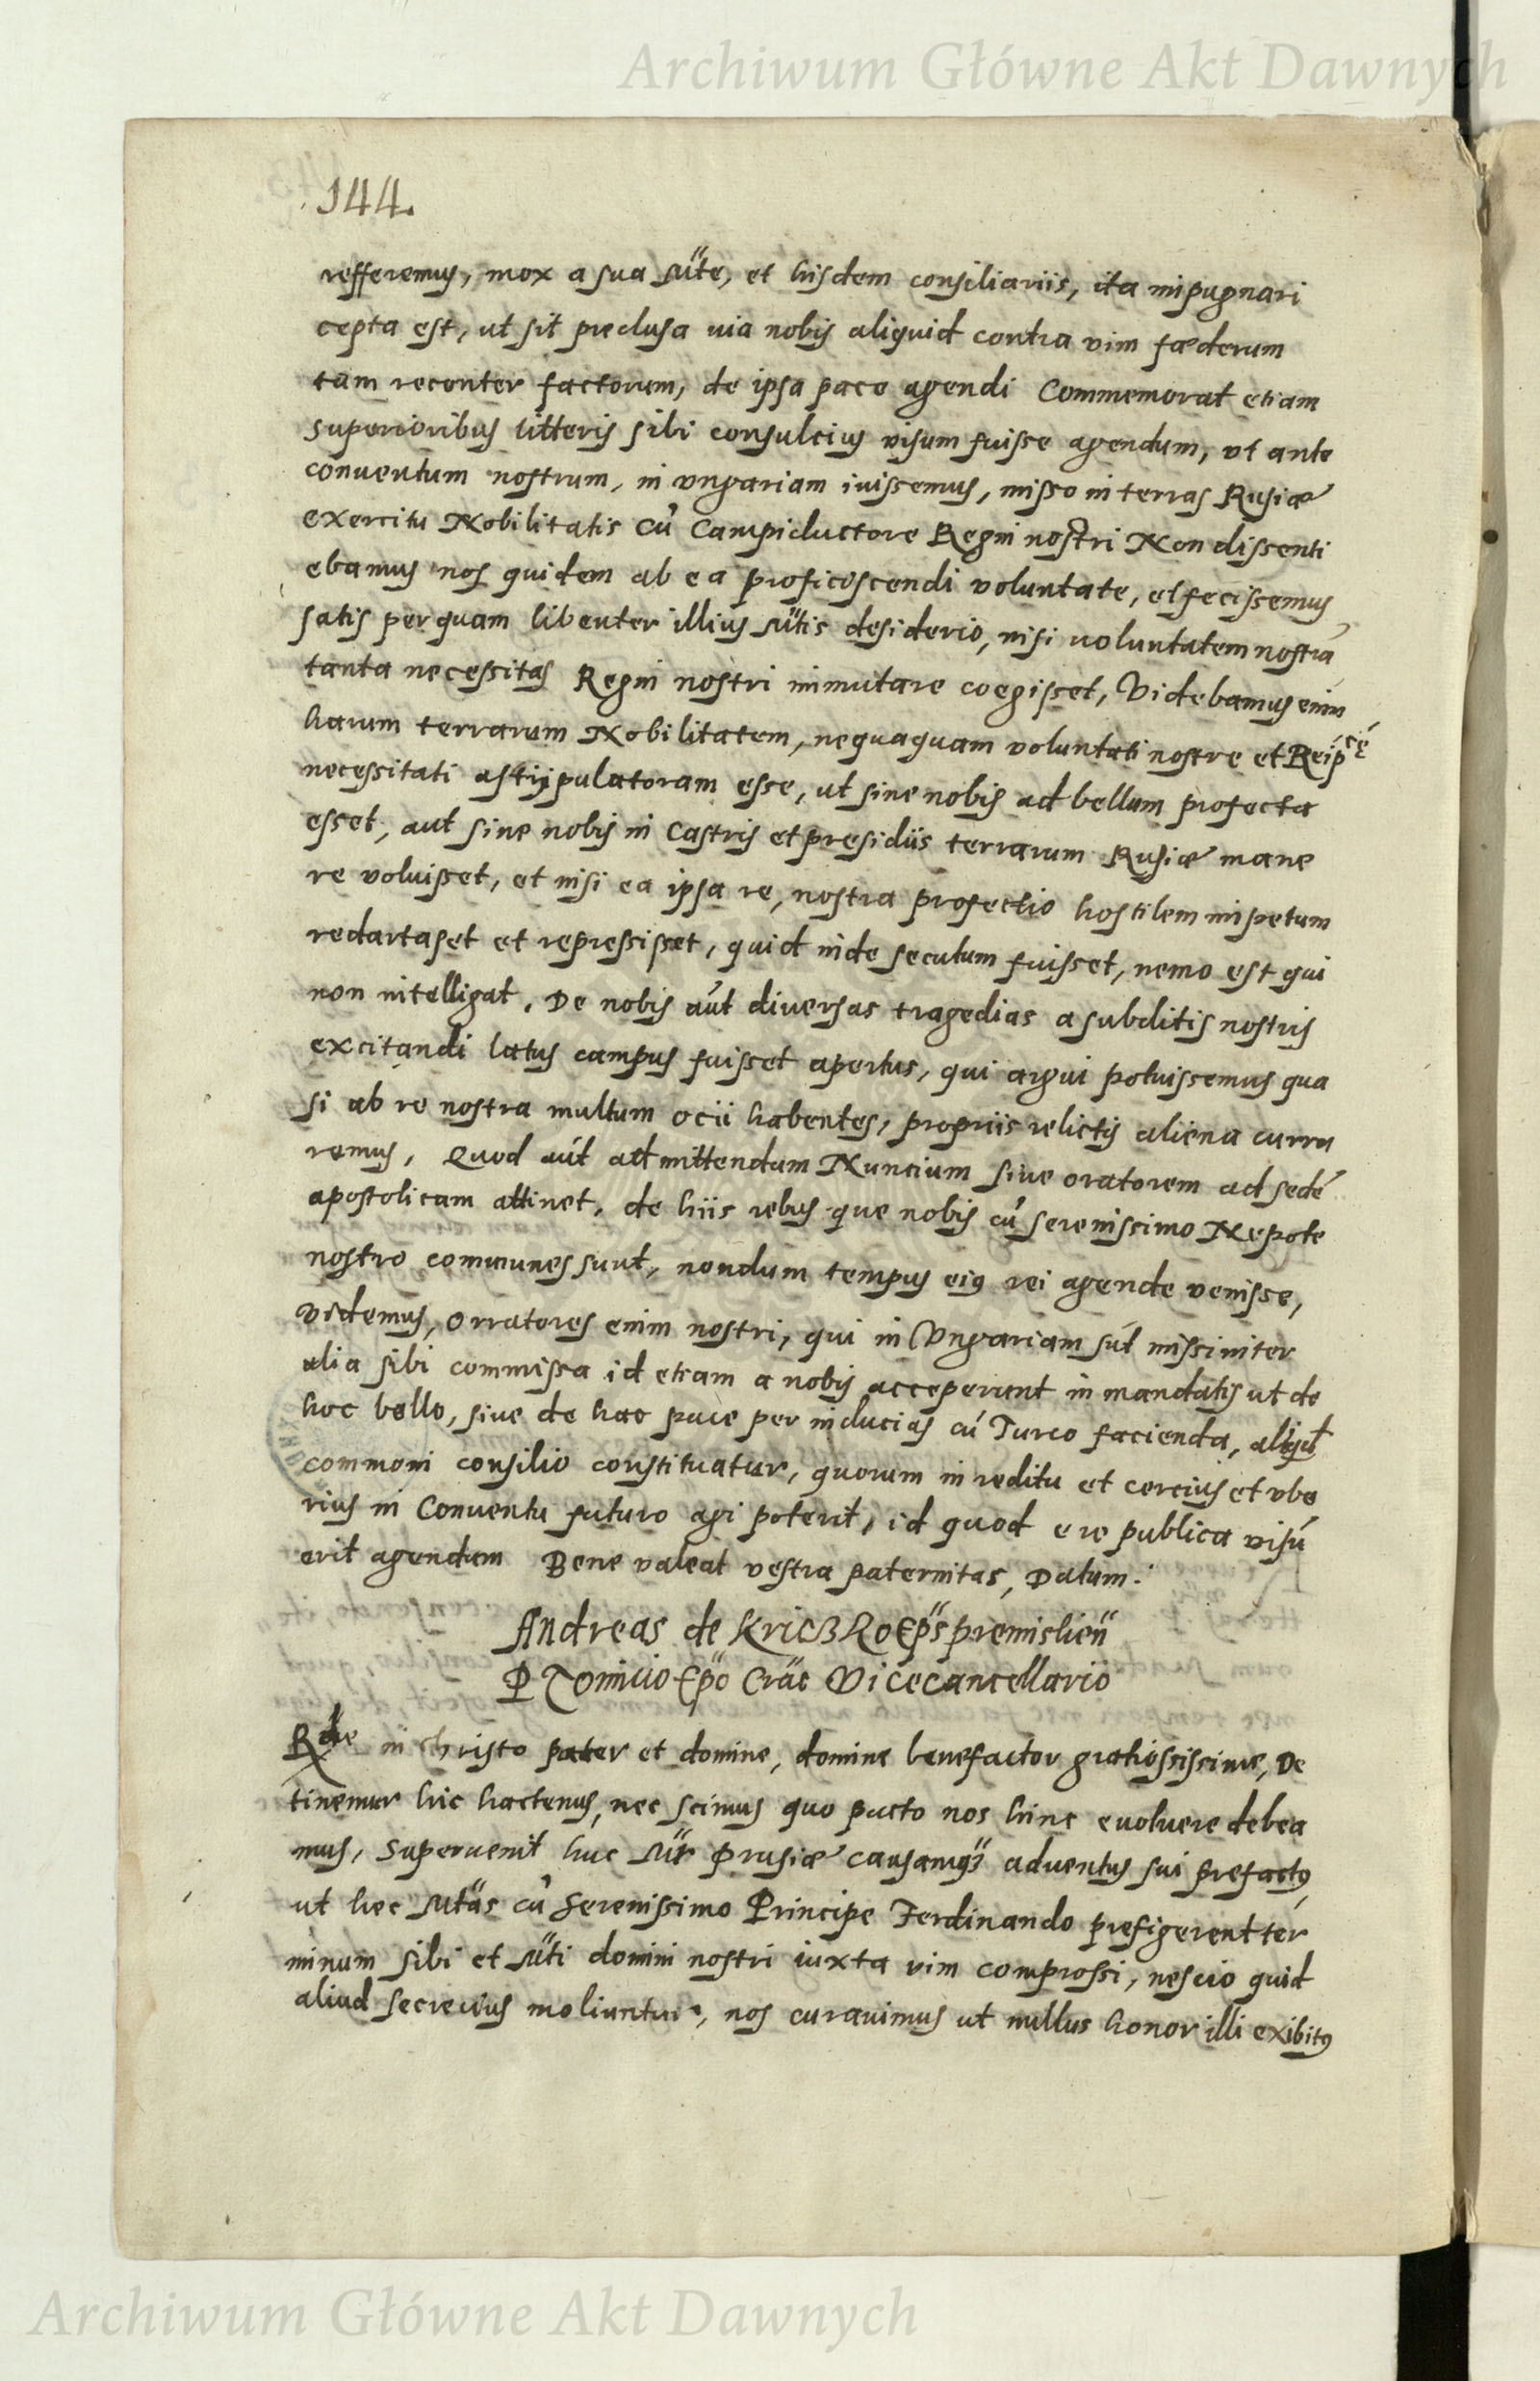 Archiwum Główne Akt Dawnych
144.
refferemus, mox a sua Mte, et hisdem consiliariis, ita inpugnari
cepta est, ut sit preclusa uia nobis aliquid contra vim fæderum
tam recenter factorum, de ipsa pace agendi Commemorat etiam
superioribus litteris sibi consulcius visum fuisse agendum, ut ante
conuentum nostrum, in vngariam iuissemus, misso in terras Rusiæ
exercitu Nobilitatis cu͂ Campiductore Regni nostri Non dissenti
ebamus nos quidem ab ea proficiscendi voluntate, et fecissemus
satis perquam libenter illius Mtis desiderio, nisi uoluntatem nostra͂
tanta necessitas Regni nostri inmutare coegisset, Videbamus enim
harum terrarum Nobilitatem, nequaquam voluntati nostre et Reipcę
necessitati astijpulatoram esse, ut sine nobis ad bellum profecta
esset, aut sine nobis in Castris et presidiis terrarum Rusiæ mane
re voluisset, et nisi ea ipsa re, nostra profectio hostilem inpetum
redartaset et repressisset, quid inde secutum fuisset, nemo est qui
non intelligat. De nobis au͂t diuersas tragedias a subditis nostris
excitandi latus campus fuisset apertus, qui argui potuissemus qua
si ab re nostra multum ocii habentes, propriis relictis aliena curra
remus, Quod au͂t ad mittendum Nuncium siue oratorem ad sede͂
apostolicam attinet, de hiis rebus que nobis cu͂ serenissimo Nepote
nostro communes sunt, nondum tempus eius rei agende venisse,
videmus, Orratores enim nostri, qui in Vngariam su͂t missi inter
alia sibi commissa id etiam a nobis acceperunt in mandatis ut de
hoc bello, siue de hac pace per inducias cu͂ Turco facienda, aliqd
commoni consilio constituatur, quorum in reditu et cercius et vbe
rius in Conuentu futuro agi poterit, id quod e re publica visu͂
erit agendum Bene valeat vestra paternitas, Datum.
Andreas de KriczKo Eps premislien
P Tomicio Epo Crac Vicecancellario
Rde in christo pater et domine, domine benefactor gratiosissime, De
tinemur hic hactenus, nec scimus quo pacto nos hinc euoluere debea
mus, Superuenit huc Mgr Prusiæ causamqз aduentus sui prefactus
ut hec Mtas cu͂ Serenissimo Principe Ferdinando prefigerent ter
minum sibi et Mti domini nostri iuxta vim compromssi, nescio quid
aliud secrecius moliuntur, nos curauimus ut nullus honor illi exibitus
Archiwum Główne Akt Dawnych